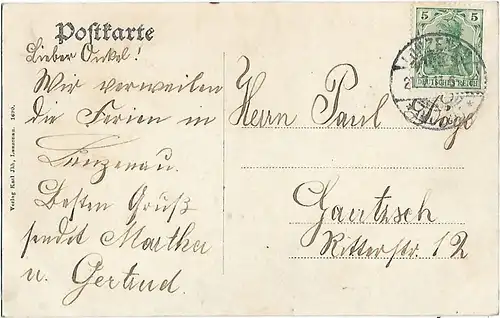 Postkarte
Lieber Onkel!
Wir verweilen
die Ferien in
Lunzenau.
Besten Gruß
sendet Martha
u. Gertrud.
Herrn Paul
Gautzsch
Ritterstr. 12
5 5
DEUTSCHES REICH
Verlag Karl